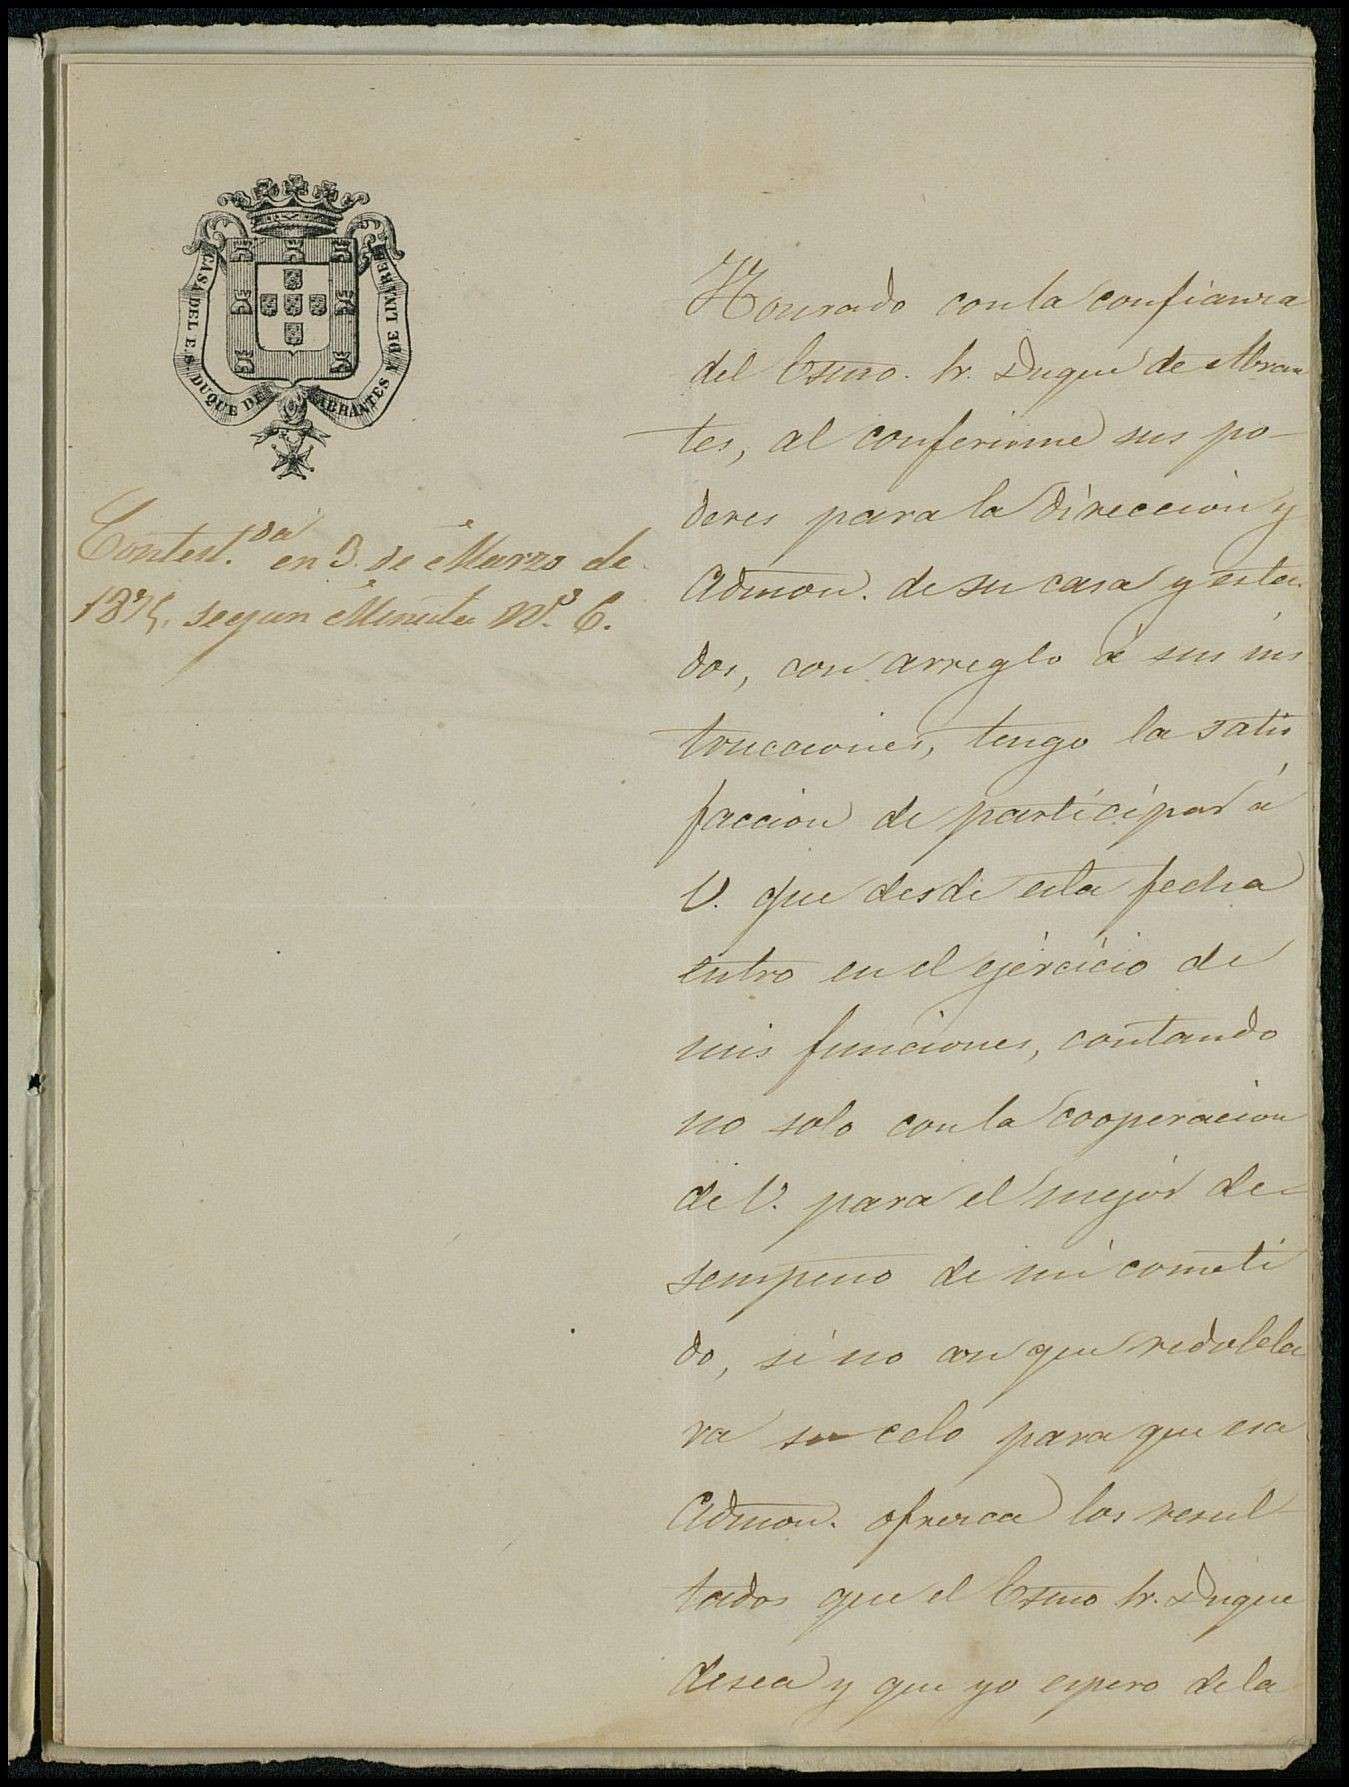 CASA DEL E. S. DUQUE DE ABRANTES Y DE LINARES
Contest.da en 3 de Marzo de
1875, segun Minuta Nº. 6.
Honrado con la confianza
del Esmo. Sr. Duque de Abran
tes, al conferirme sus po-
deres para la direccion y
Admon. de su casa y esta-
dos, con arreglo á sus ins
trucciones, tengo la satis
faccion de participar á
V. que desde esta fecha
entro en el ejercicio de
mis funciones, contando
no solo con la cooperacion
de V. para el mejor de-
sempeno de mi cometi
do, si no con que redobla
ra su celo para que esa
Admon. ofrezca los resul
tados que el Esmo Sr. Duque
desea y que yo espero de la